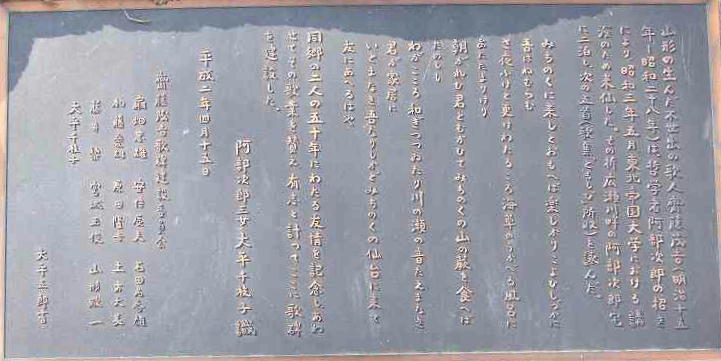 山形の生んだ不世出の歌人斎藤茂吉(明治十五
年〜昭和二十八年)は哲学者阿部次郎の招き
により昭和三年五月東北帝国大学における講
演のため来仙した。その折広瀬川畔の阿部次郎宅
に二泊し、次の五首(歌集「ともしび」所収)を詠んだ。
みちのくに来しくおもへば楽しかりこよひしづかに
吾はねむらむ
さ夜ふけと更けわたるころ海草のうかべる風呂に
あたたまりけり
朝がれひ君とむかひてみちのくの山の蕨を食へば
たのしも
わがこころ和ぎつつゐたり川の瀬の音たえまなき
君が家居に
いとまなき吾なりしかどみちのくの仙台に来て
友にあへるはや
同郷の二人の五十年にわたる友情を記念しあわ
せてその歌業を讃え有志と計ってここに歌碑
を建設した。
阿部次郎三女大平千枝子識
平成二年四月十五日
斎藤茂吉歌碑建設委員会
扇畑忠雄 安倍辰夫
加藤 原田隆吉
大平千枝子
大平五郎書